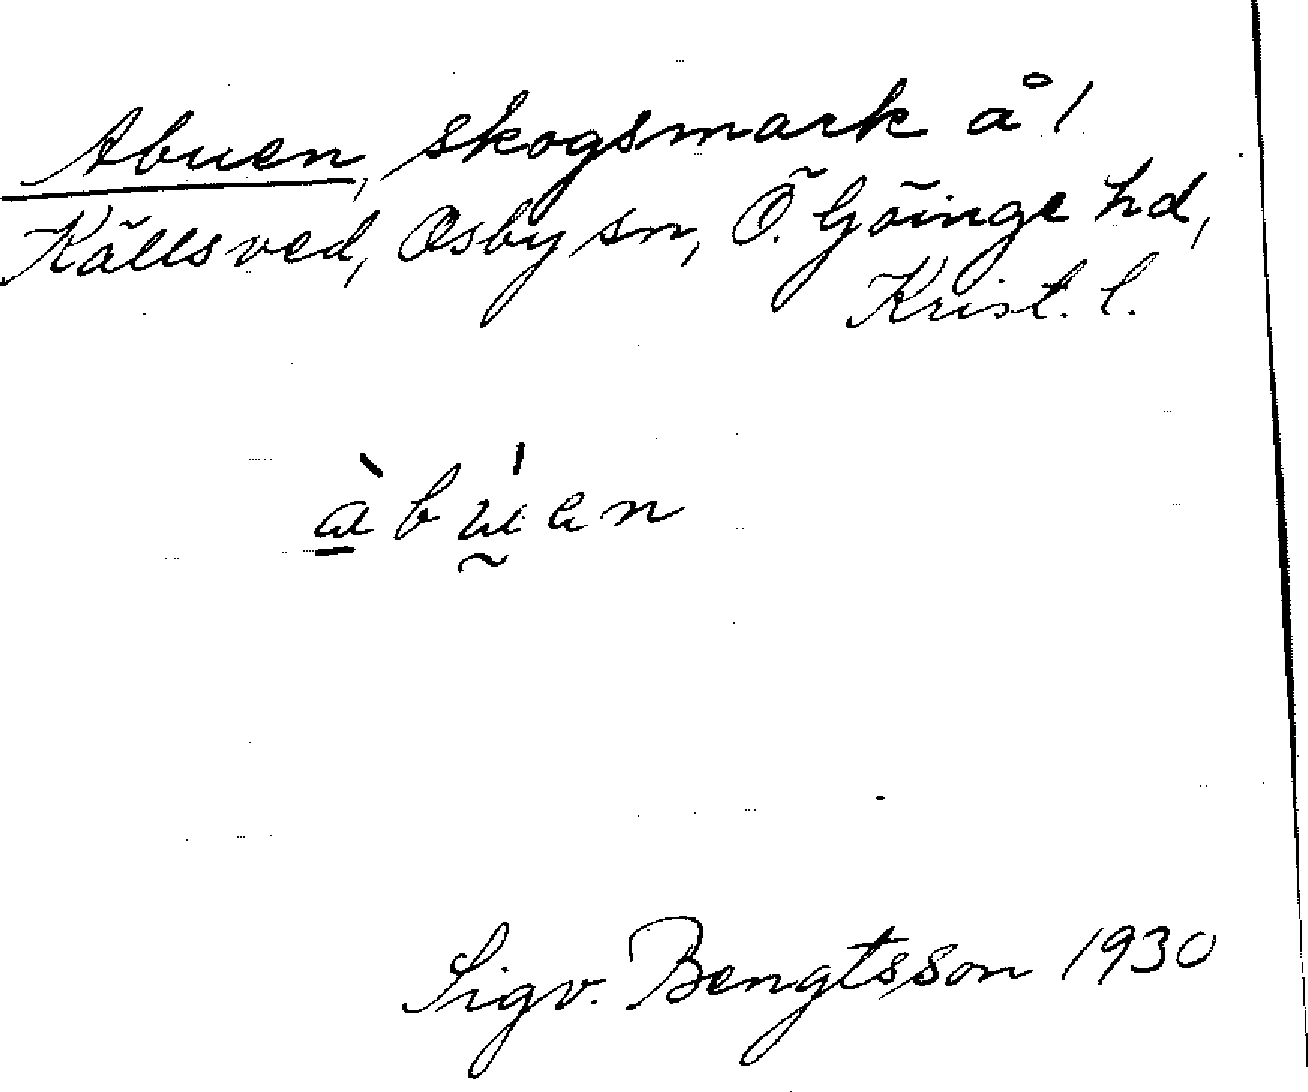 Abuen, skogsmark å 1
Källsved, Osby sn, Ö. Göinge hd,
Krist. l.
àbúen
Sigv. Bengtsson 1930